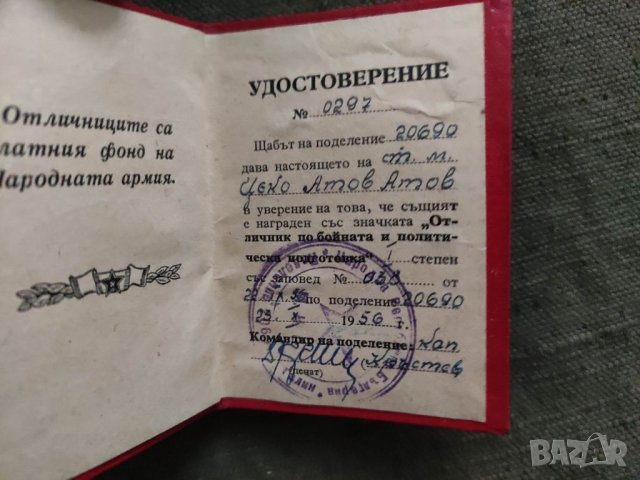 Отличниците са
латния фонд на
Народната армия.
УДОСТОВЕРЕНИЕ
№ 0297
Щабът на поделение 20690
дава настоящето на ст. м.
Цеко Атов Атов
в уверение на това, че същият
е награден със значката „От-
личник по бойната и полити-
ческа подготовка" I степен
със заповед № от
по поделение 20690
23. X 1956 г.
Командир на поделение: Кап
(печат) (Кръстев
BAZAR